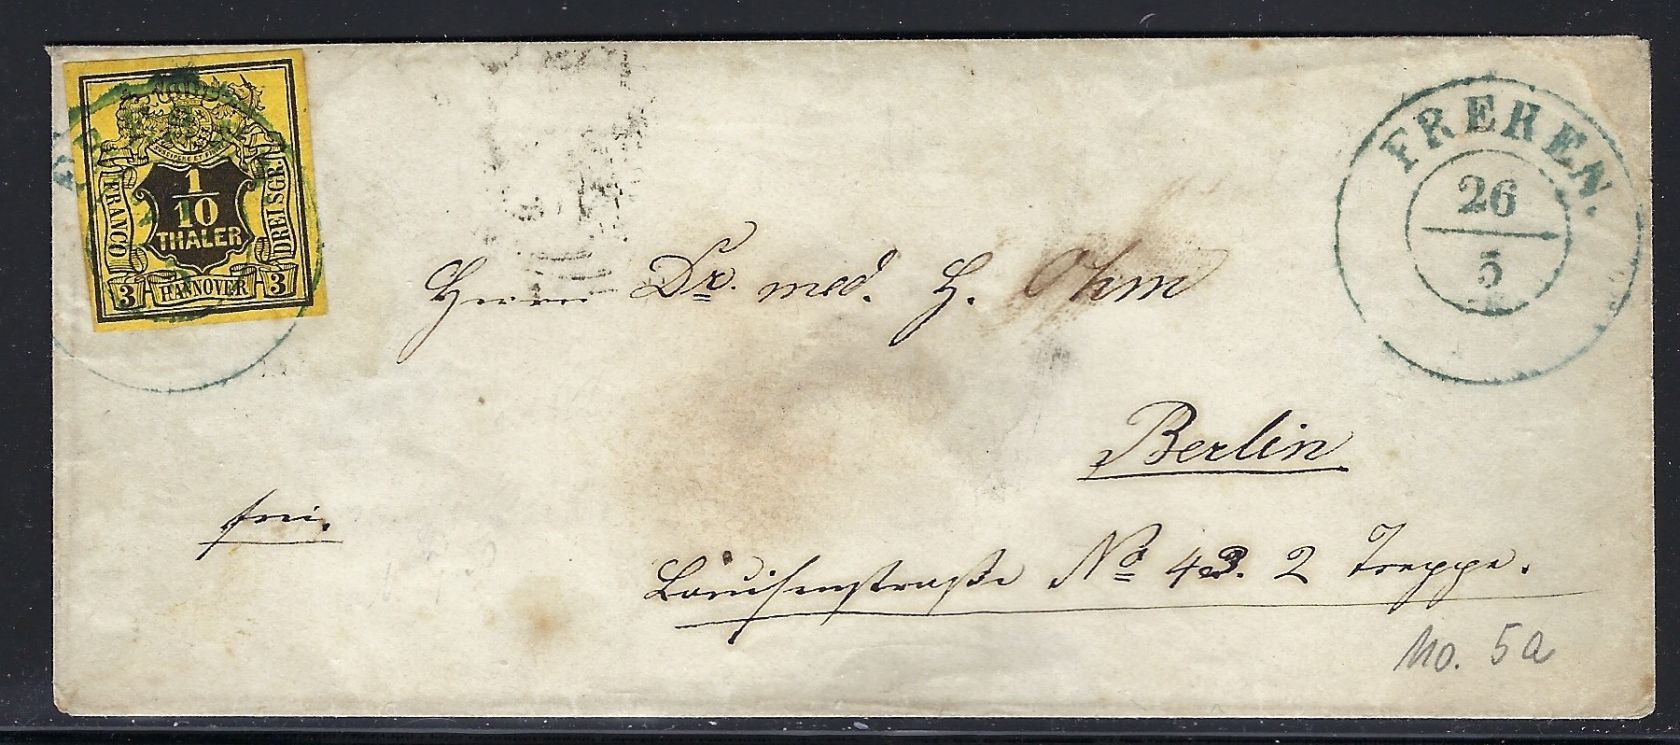 FRANCO
1
10
THALER
DREI SGR.
3 HANNOVER 3
FREREN.
26
5
Herrn Dr. med. H. Ohm
Berlin
frei.
Louisenstraße No 43. 2 Treppe.
No. 5a